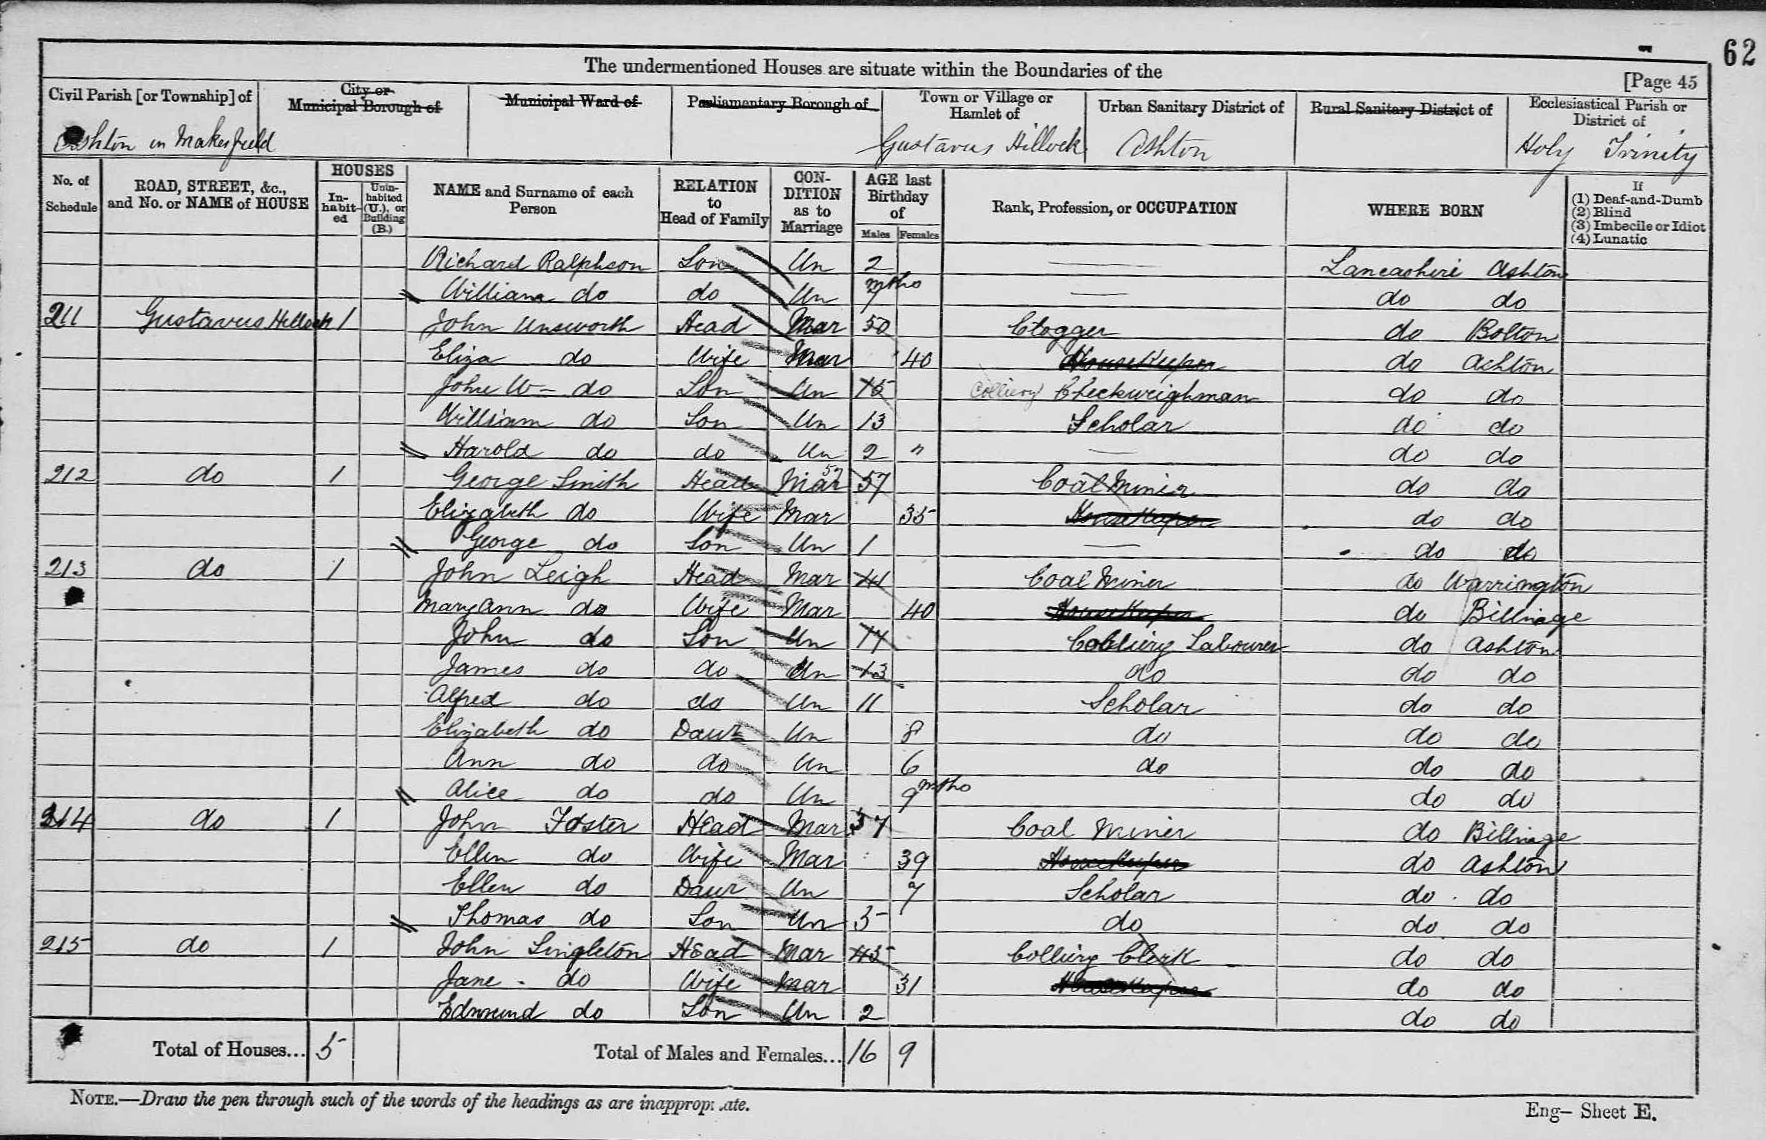 62
The undermentioned Houses are situate within the Boundaries of the
[Page 45
Civil Parish [or Township] of
City or Municipal Borough of
Municipal Ward of
Parliamentary Borough of
Town or Village or Hamlet of
Urban Sanitary District of
Rural Sanitary District of
Ecclesiastical Parish or District of
Ashton in Makerfield
Gustavus Hillock
Ashton
Holy Trinity
No. of Schedule
ROAD, STREET, &c., and No. or NAME of HOUSE
HOUSES
In-habit-ed
Unin-habited (U.), or Building (B.)
NAME and Surname of each Person
RELATION to Head of Family
CON-DITION as to Marriage
AGE last Birthday of
Males Females
Rank, Profession, or OCCUPATION
WHERE BORN
If
(1) Deaf-and-Dumb
(2) Blind
(3) Imbecile or Idiot
(4) Lunatic
Richard Ralphson Son Un 2 Lancashire Ashton
William do do Un 7 mths do do
211 Gustavus Hillock 1 John Unsworth Head Mar 50 Clogger do Bolton
Eliza do Wife Mar 40 HouseKeeper do Ashton
John W do Son Un 15 Colliery Checkweighman do do
William do Son Un 13 Scholar do do
Harold do do Un 2 " do do
212 do 1 George Smith Head Mar 57 57 Coal Miner do do
Elizabeth do Wife Mar 35 HouseKeeper do do
George do Son Un 1 do do
213 do 1 John Leigh Head Mar 41 Coal Miner do Warrington
Mary Ann do Wife Mar 40 HouseKeeper do Billinge
John do Son Un 14 Colliery Labourer do Ashton
James do do Un 13 do do do
Alfred do do Un 11 Scholar do do
Elizabeth do Daur Un 8 do do do
Ann do do Un 6 do do do
Alice do do Un 9 mths do do
214 do 1 John Foster Head Mar 37 Coal Miner do Billinge
Ellen do Wife Mar 39 HouseKeeper do Ashton
Ellen do Daur Un 7 Scholar do do
Thomas do Son Un 5 do do do
215 do 1 John Singleton Head Mar 45 Colliery Clerk do do
Jane do Wife Mar 31 HouseKeeper do do
Edmund do Son Un 2 do do
Total of Houses... 5 Total of Males and Females... 16 9
NOTE.—Draw the pen through such of the words of the headings as are inappropriate.
Eng— Sheet E.